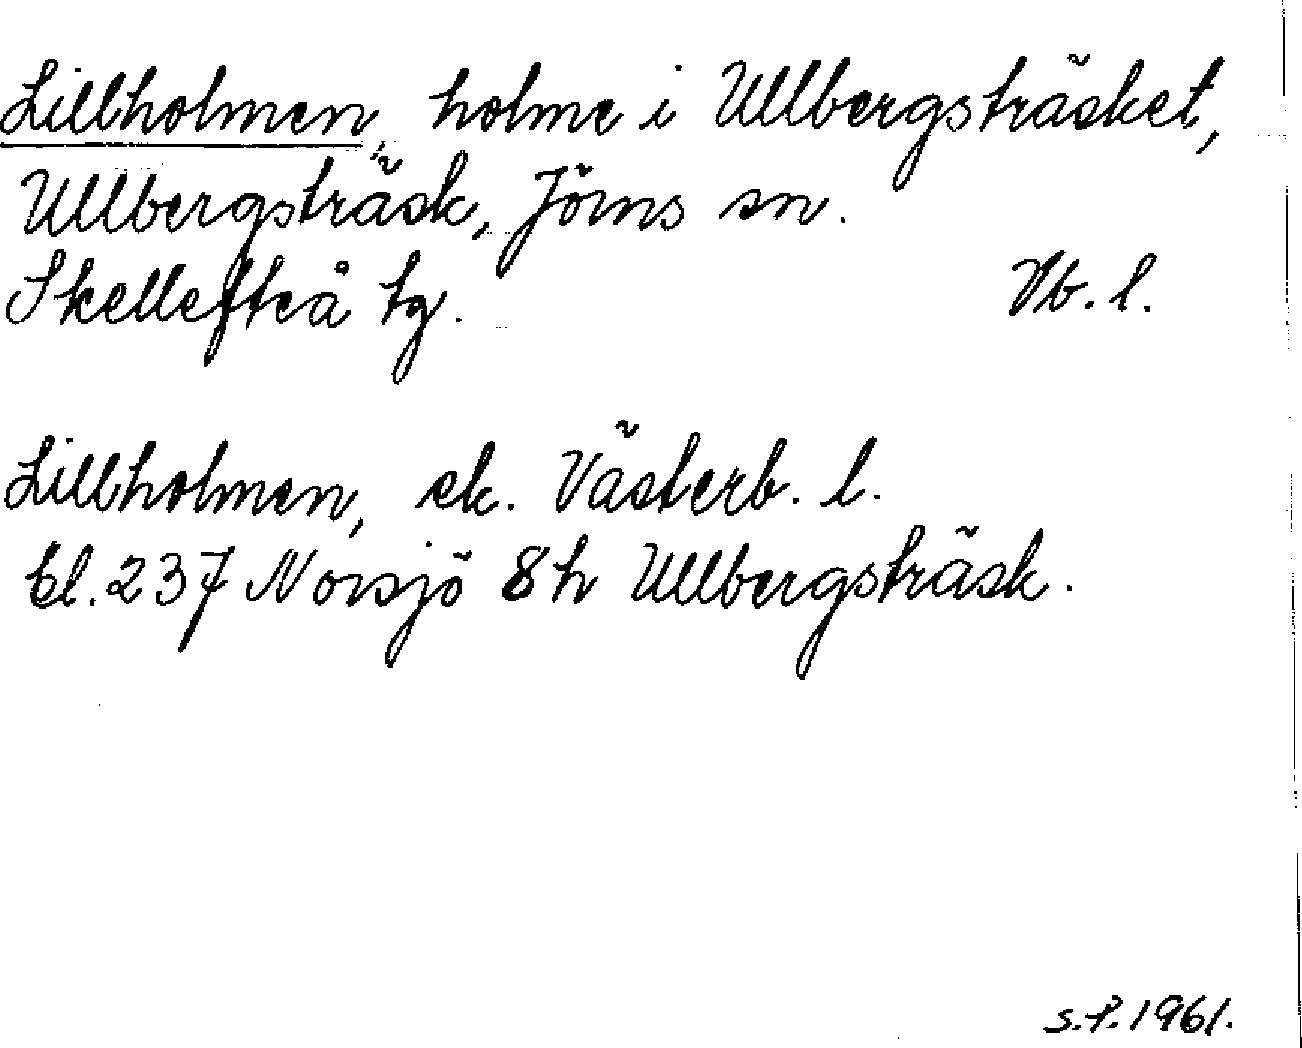 Lillholmen, holme i Ullbergsträsket,
Ullbergsträsk, Jörns sn.
Skellefteå tg. Vb. l.
Lillholmen, ek. Västerb. l.
bl. 237 Norsjö 8h Ullbergsträsk.
S.P. 1961.